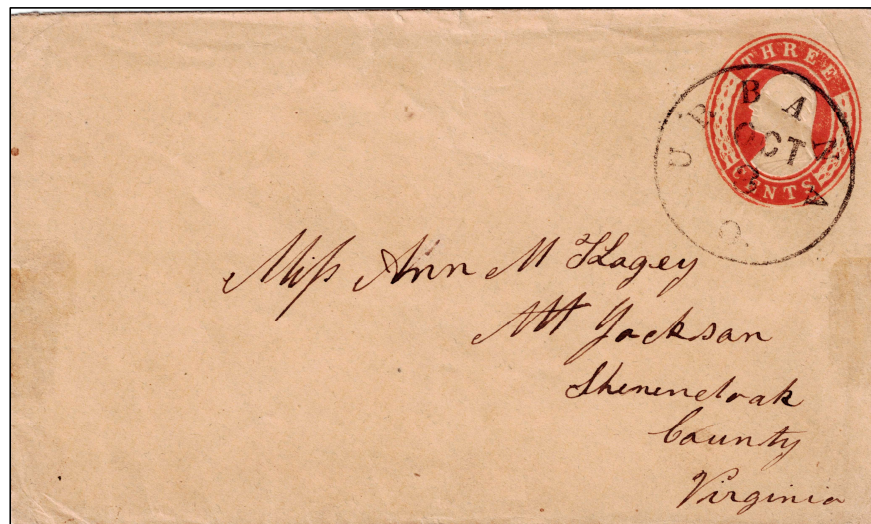 THREE
CENTS
URBANA
OCT
3
O.
Miſs Ann M Hagey
Mt Jackson
Shenendoah
County
Virginia